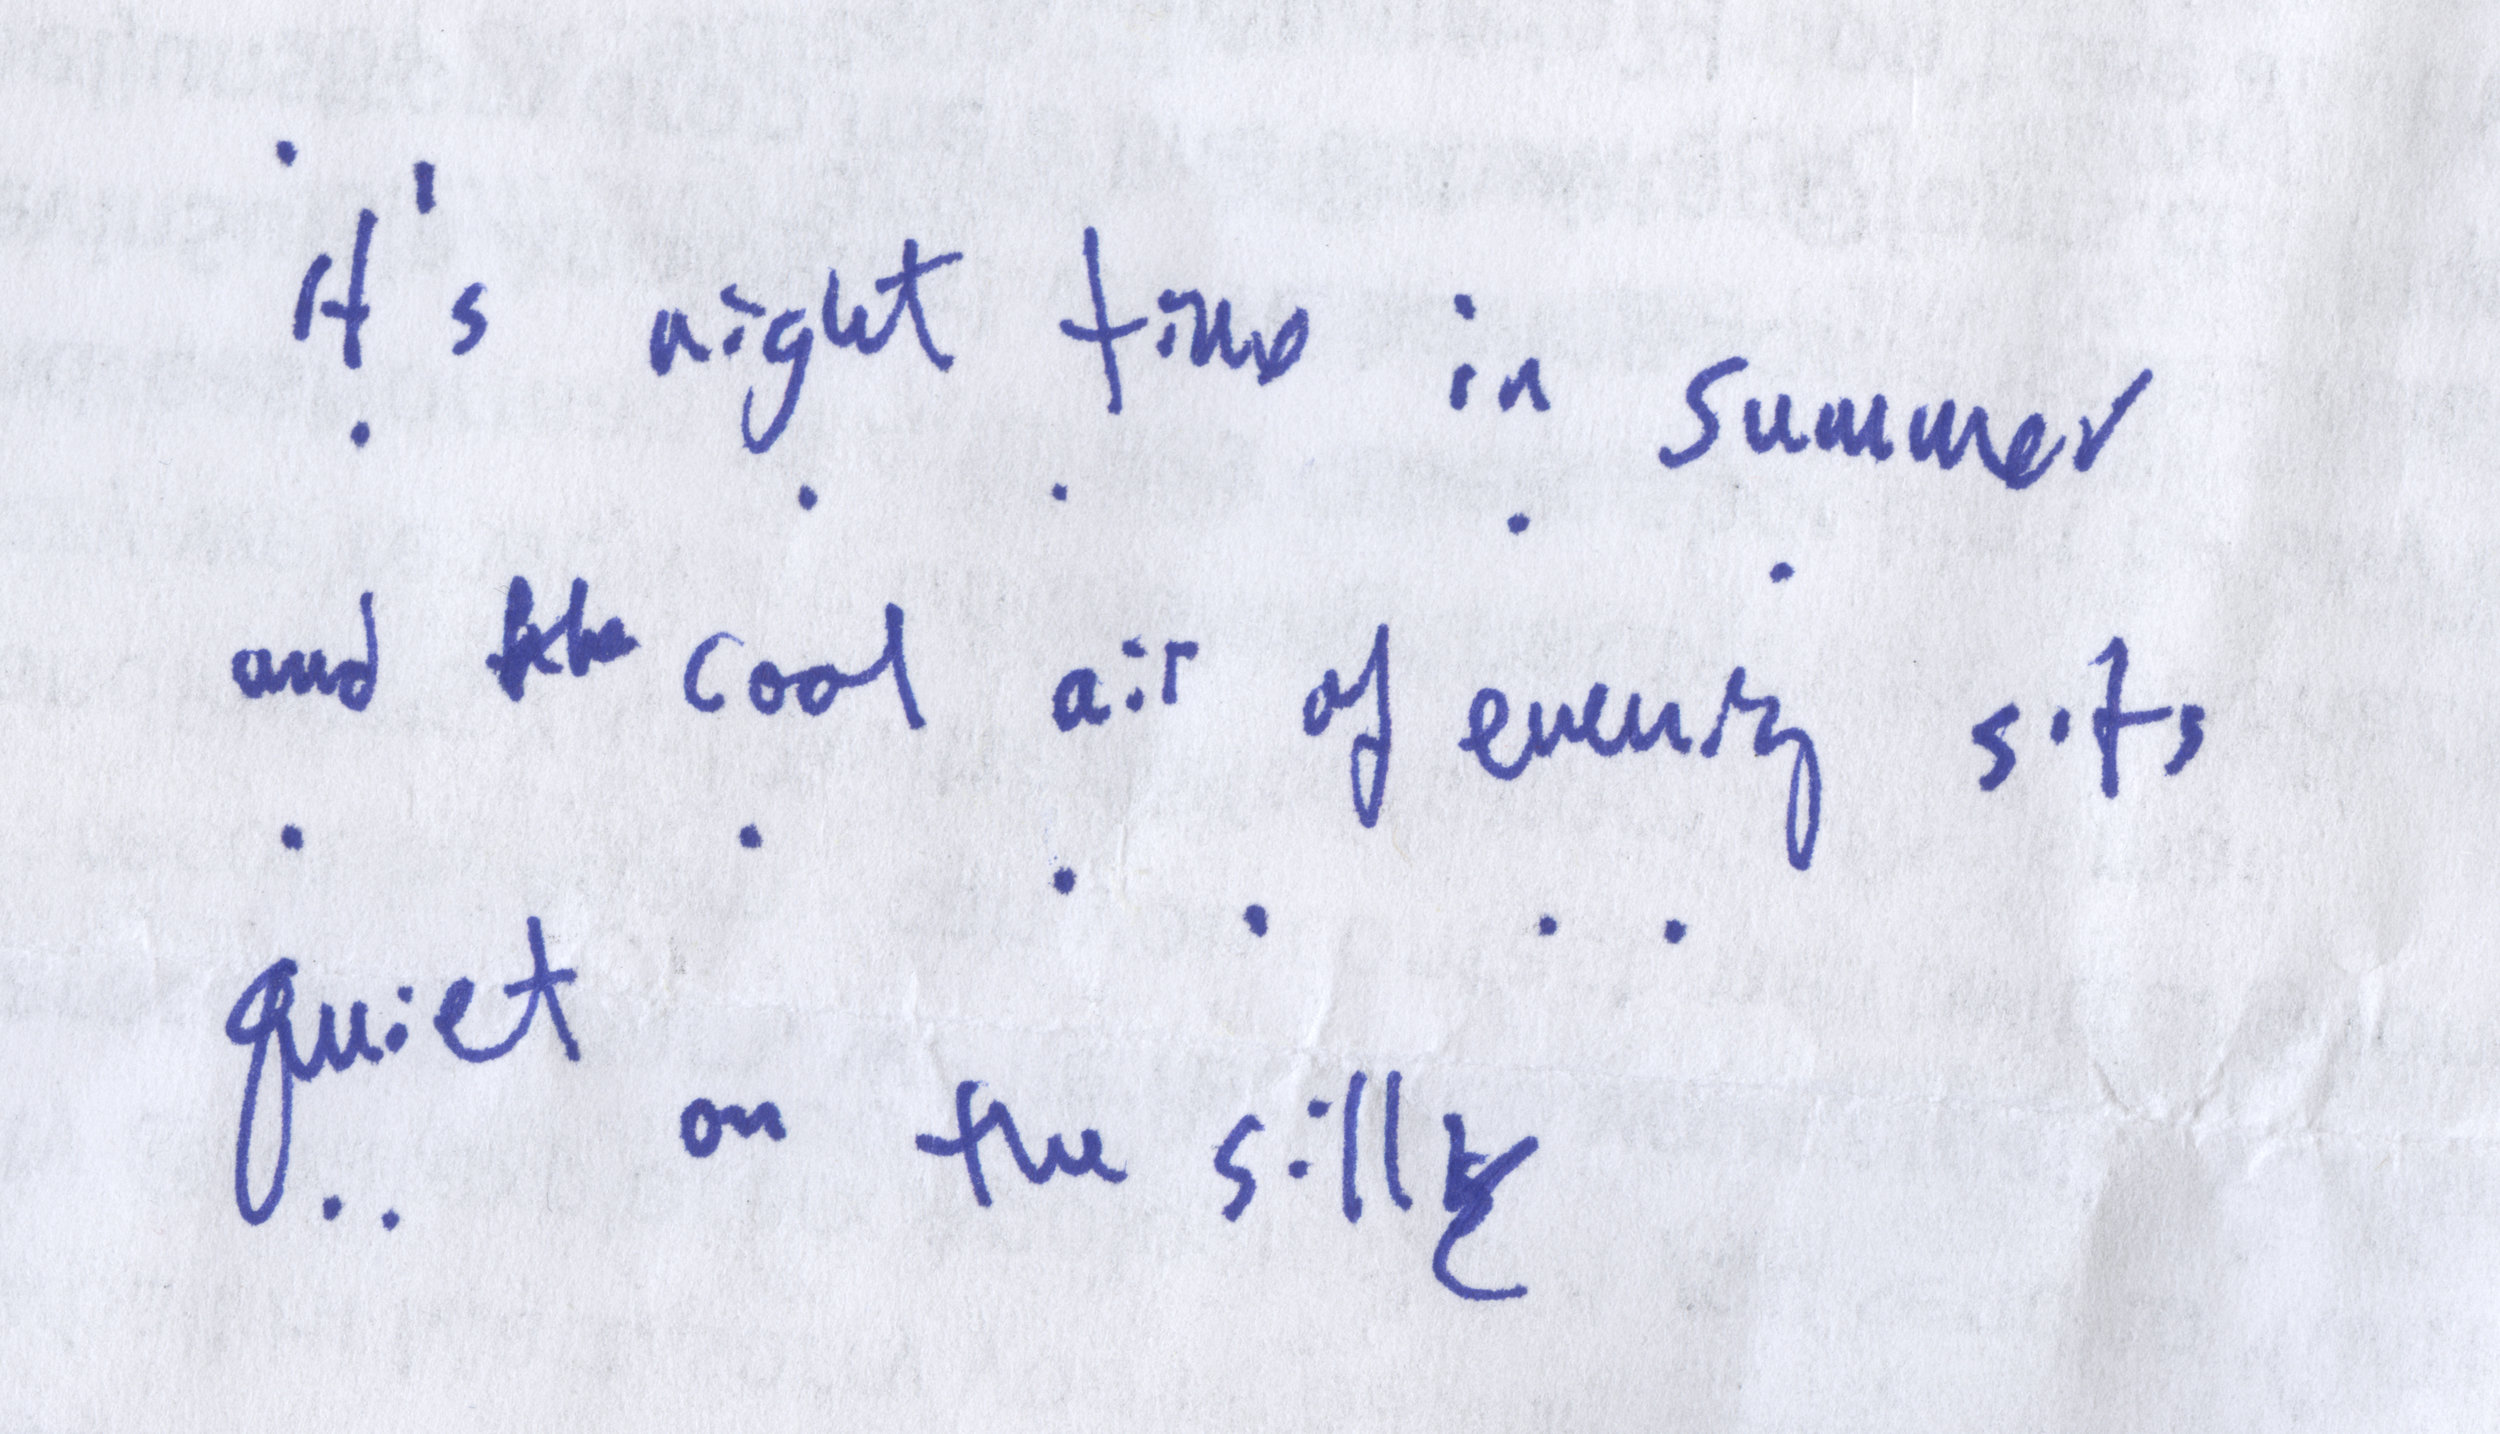 it's night time in summer
and the cool air of evening sits
quiet on the silly